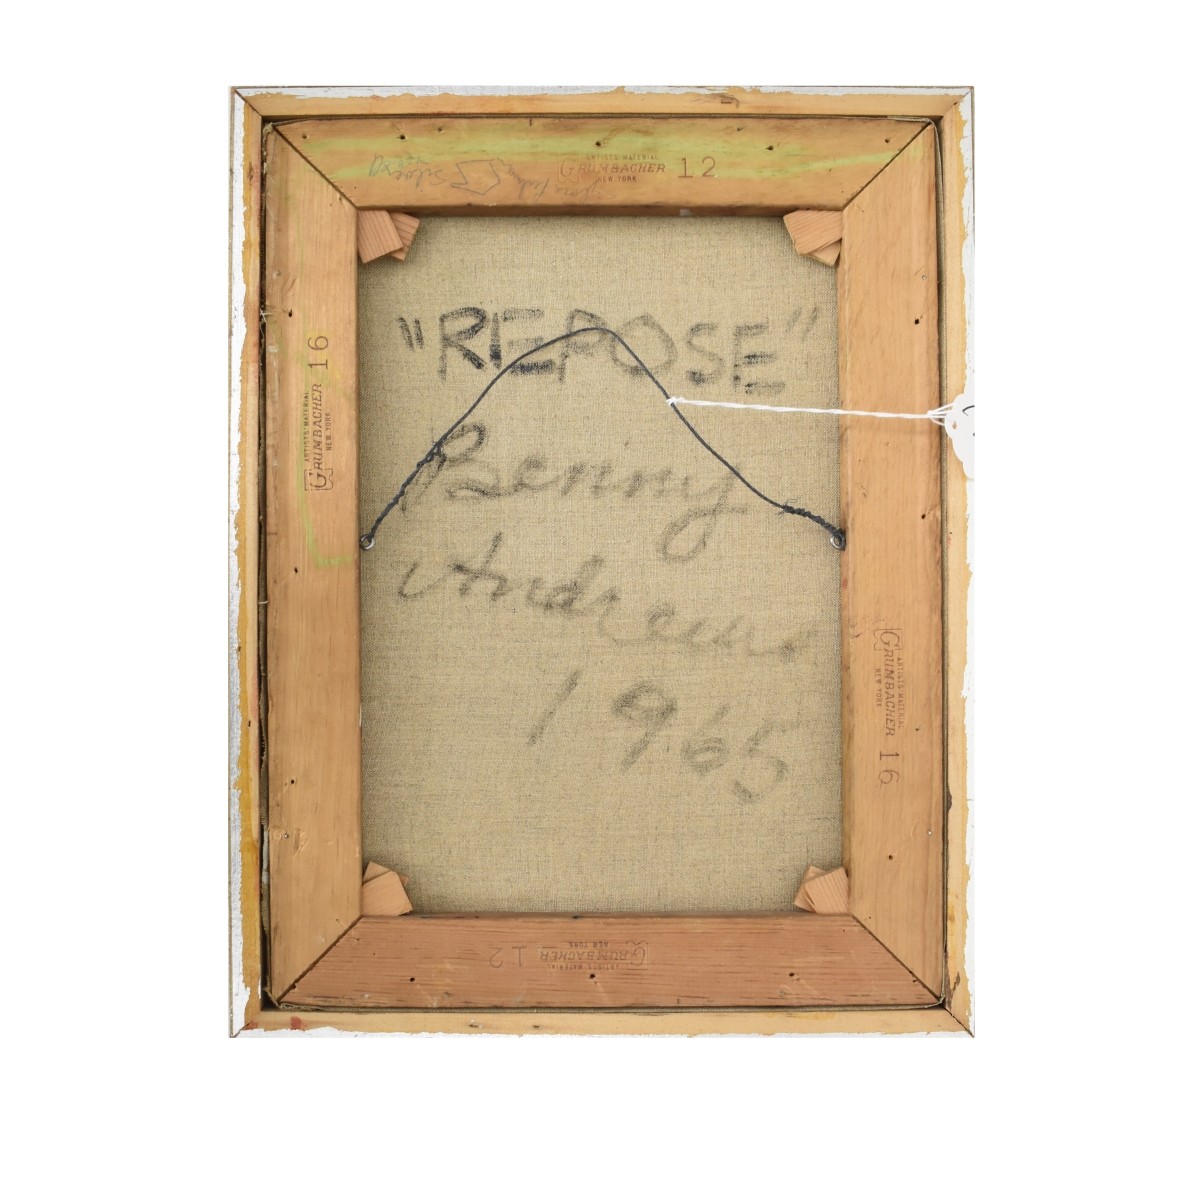 ARTISTS' MATERIAL
GRUMBACHER 12
NEW YORK
"REPOSE"
Benny
Andrews
1965
ARTISTS' MATERIAL
GRUMBACHER 16
NEW YORK
ARTISTS' MATERIAL
GRUMBACHER 16
NEW YORK
ARTISTS' MATERIAL
GRUMBACHER 12
NEW YORK